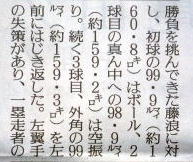 勝負を挑んできた藤浪に対
し、初球の99・9㍄（約1
60・8㌔）はボール、2
球目の真ん中への98・9㍄
（約159・2㌔）は空振
り。続く3球目、外角の99
㍄（約159・3㌔）を左
前にはじき返した。左翼手
の失策があり、一塁走者の